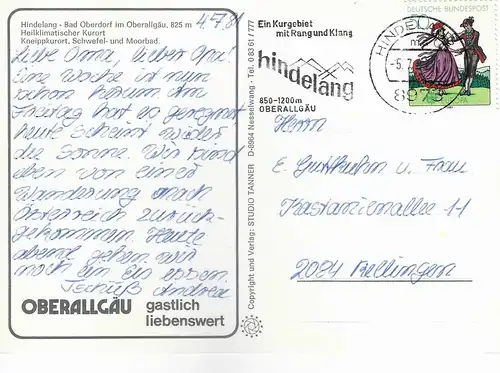 Hindelang - Bad Oberdorf im Oberallgäu, 825 m
Heilklimatischer Kurort
Kneippkurort, Schwefel- und Moorbad
4.7.8
Liebe Oma, lieber Opa!
Eine Woche ist nun
schon herum. Am
Freitag hat es geregnet
heute scheint wieder
die Sonne. Wir sind
eben von einer
Wanderung nach
Österreich zurück-
gekommen. Heute
abend gehen wir
noch ein Eis essen.
Tschüß Andrea
OBERALLGÄU gastlich
liebenswert
Copyright und Verlag: STUDIO TANNER D-8964 Nesselwang - Tel. 0 83 61 / 777
Ein Kurgebiet
mit Rang und Klang
hindelang
850-1200m
OBERALLGÄU
HINDELANG
-5.7
8973
DEUTSCHE BUNDESPOST
Herrn
E. und Frau
Kastanienallee 11
2084 Rellingen